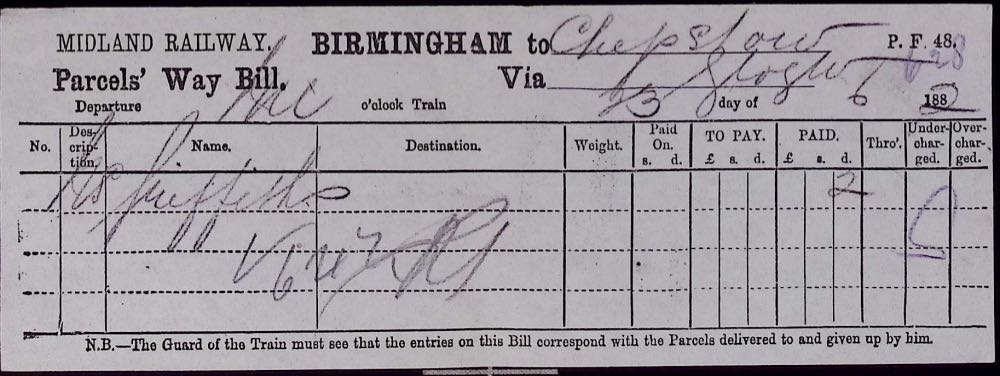 MIDLAND RAILWAY. BIRMINGHAM to Chepstow P. F. 48.
Parcels' Way Bill. Via
Departure o'clock Train 13 day of 6 1882
No. Description. Name. Destination. Weight. Paid On. s. d. TO PAY. £ s. d. PAID. £ s. d. Thro'. Undercharged. Overcharged.
Griffiths 2
N.B.—The Guard of the Train must see that the entries on this Bill correspond with the Parcels delivered to and given up by him.